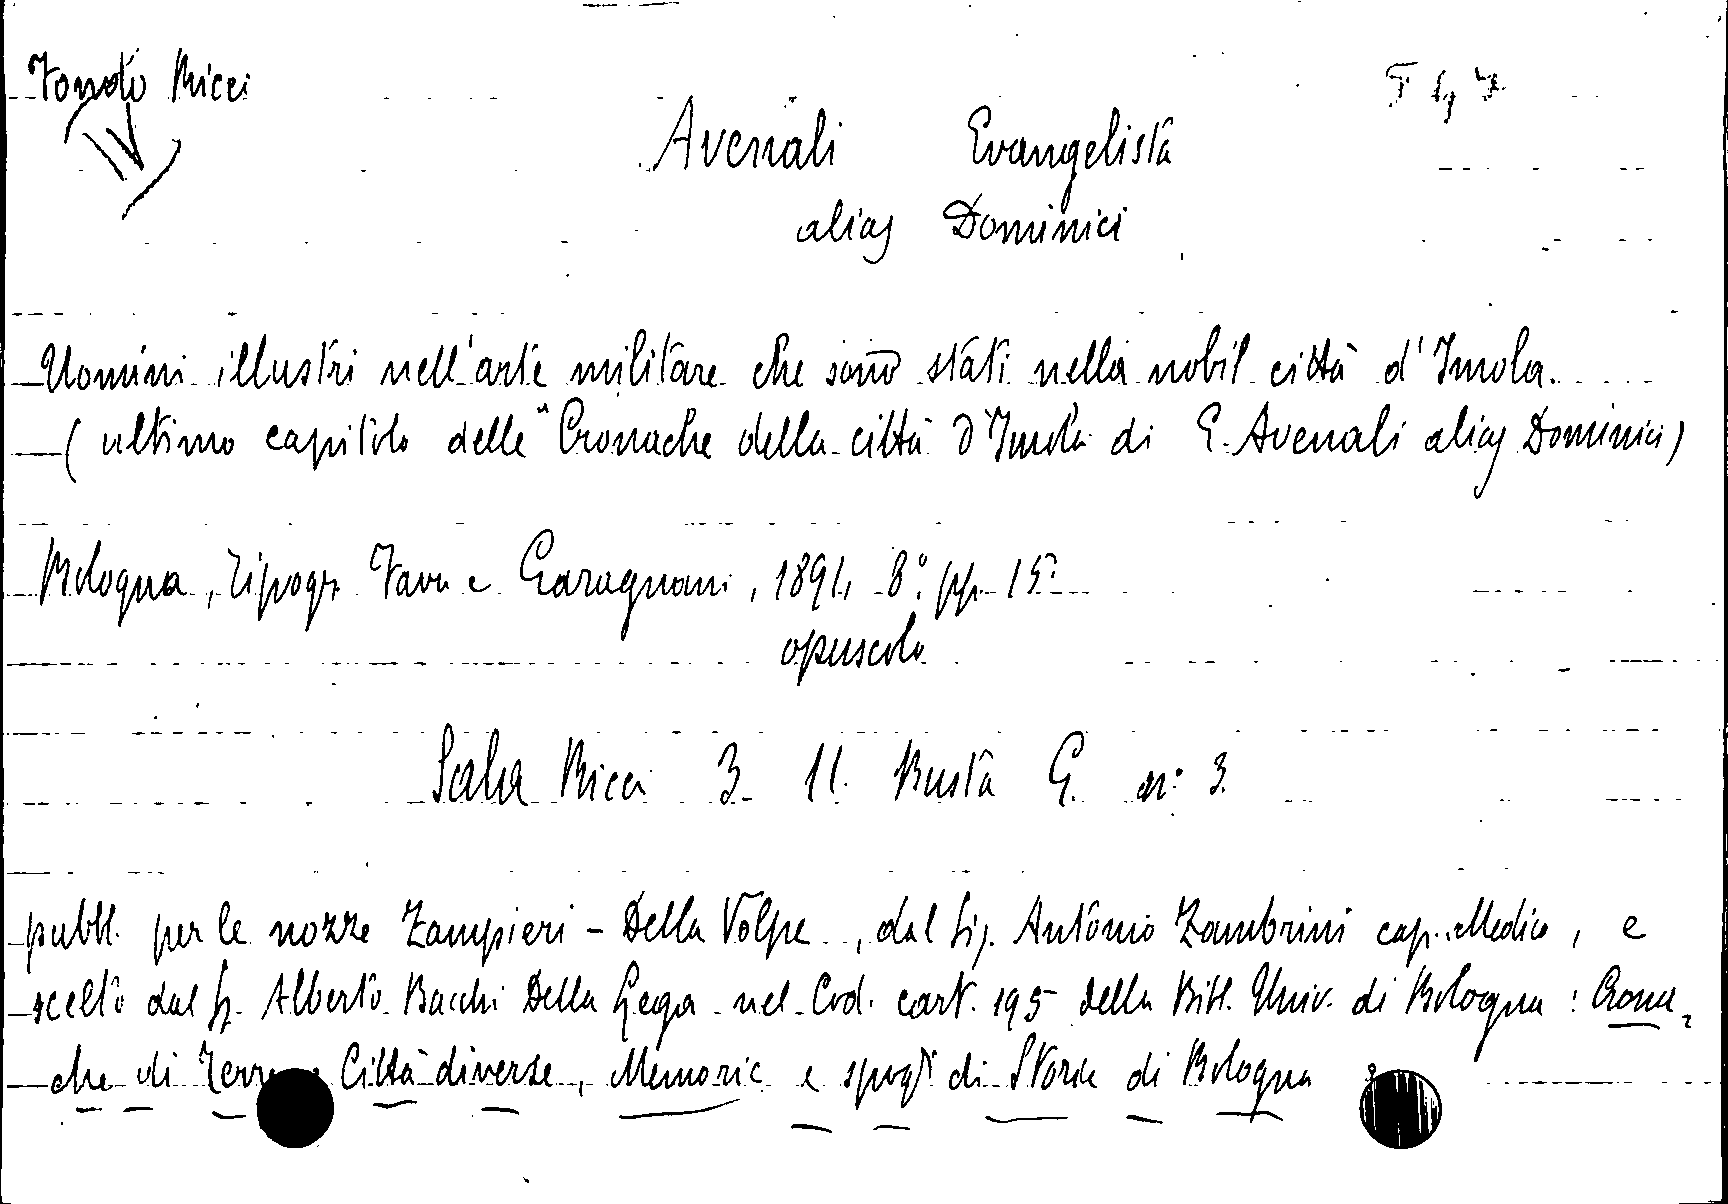 Fondo Ricci
IV
Avenali Evangelista
alias Dominici
Uomini illustri nell'arte militare che sono stati nella nobil città d'Imola.
( ultimo capitolo delle "Cronache della città d'Imola di E. Avenali alias Dominici)
Bologna, Tipogr. Fava e Garagnani, 1891, 8° pp. 15.
opuscolo
Scaha Ricci 3. 11. Busta G. n° 3.
pubbl. per le nozze Zampieri - Della Volpe, dal Sig. Antonio Zambrini cap. Medico, e
scelto dal Sg. Alberto Bacchi Della Lega nel Cod. cart. 195 della Bibl. Univ. di Bologna: Crona-
che di Terre e Città diverse, Memorie e spogli di Storia di Bologna